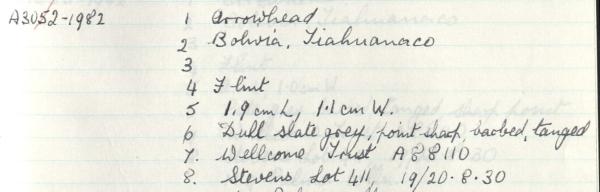 A3052-1982 1 Arrowhead
2 Bolivia, Tiahuanaco
3
4 Flint
5 1.9 cm L, 1.1 cm W.
6 Dull slate grey, point sharp, barbed, tanged
7. Wellcome Trust A88110
8. Stevens Lot 411, 19/20.8.30